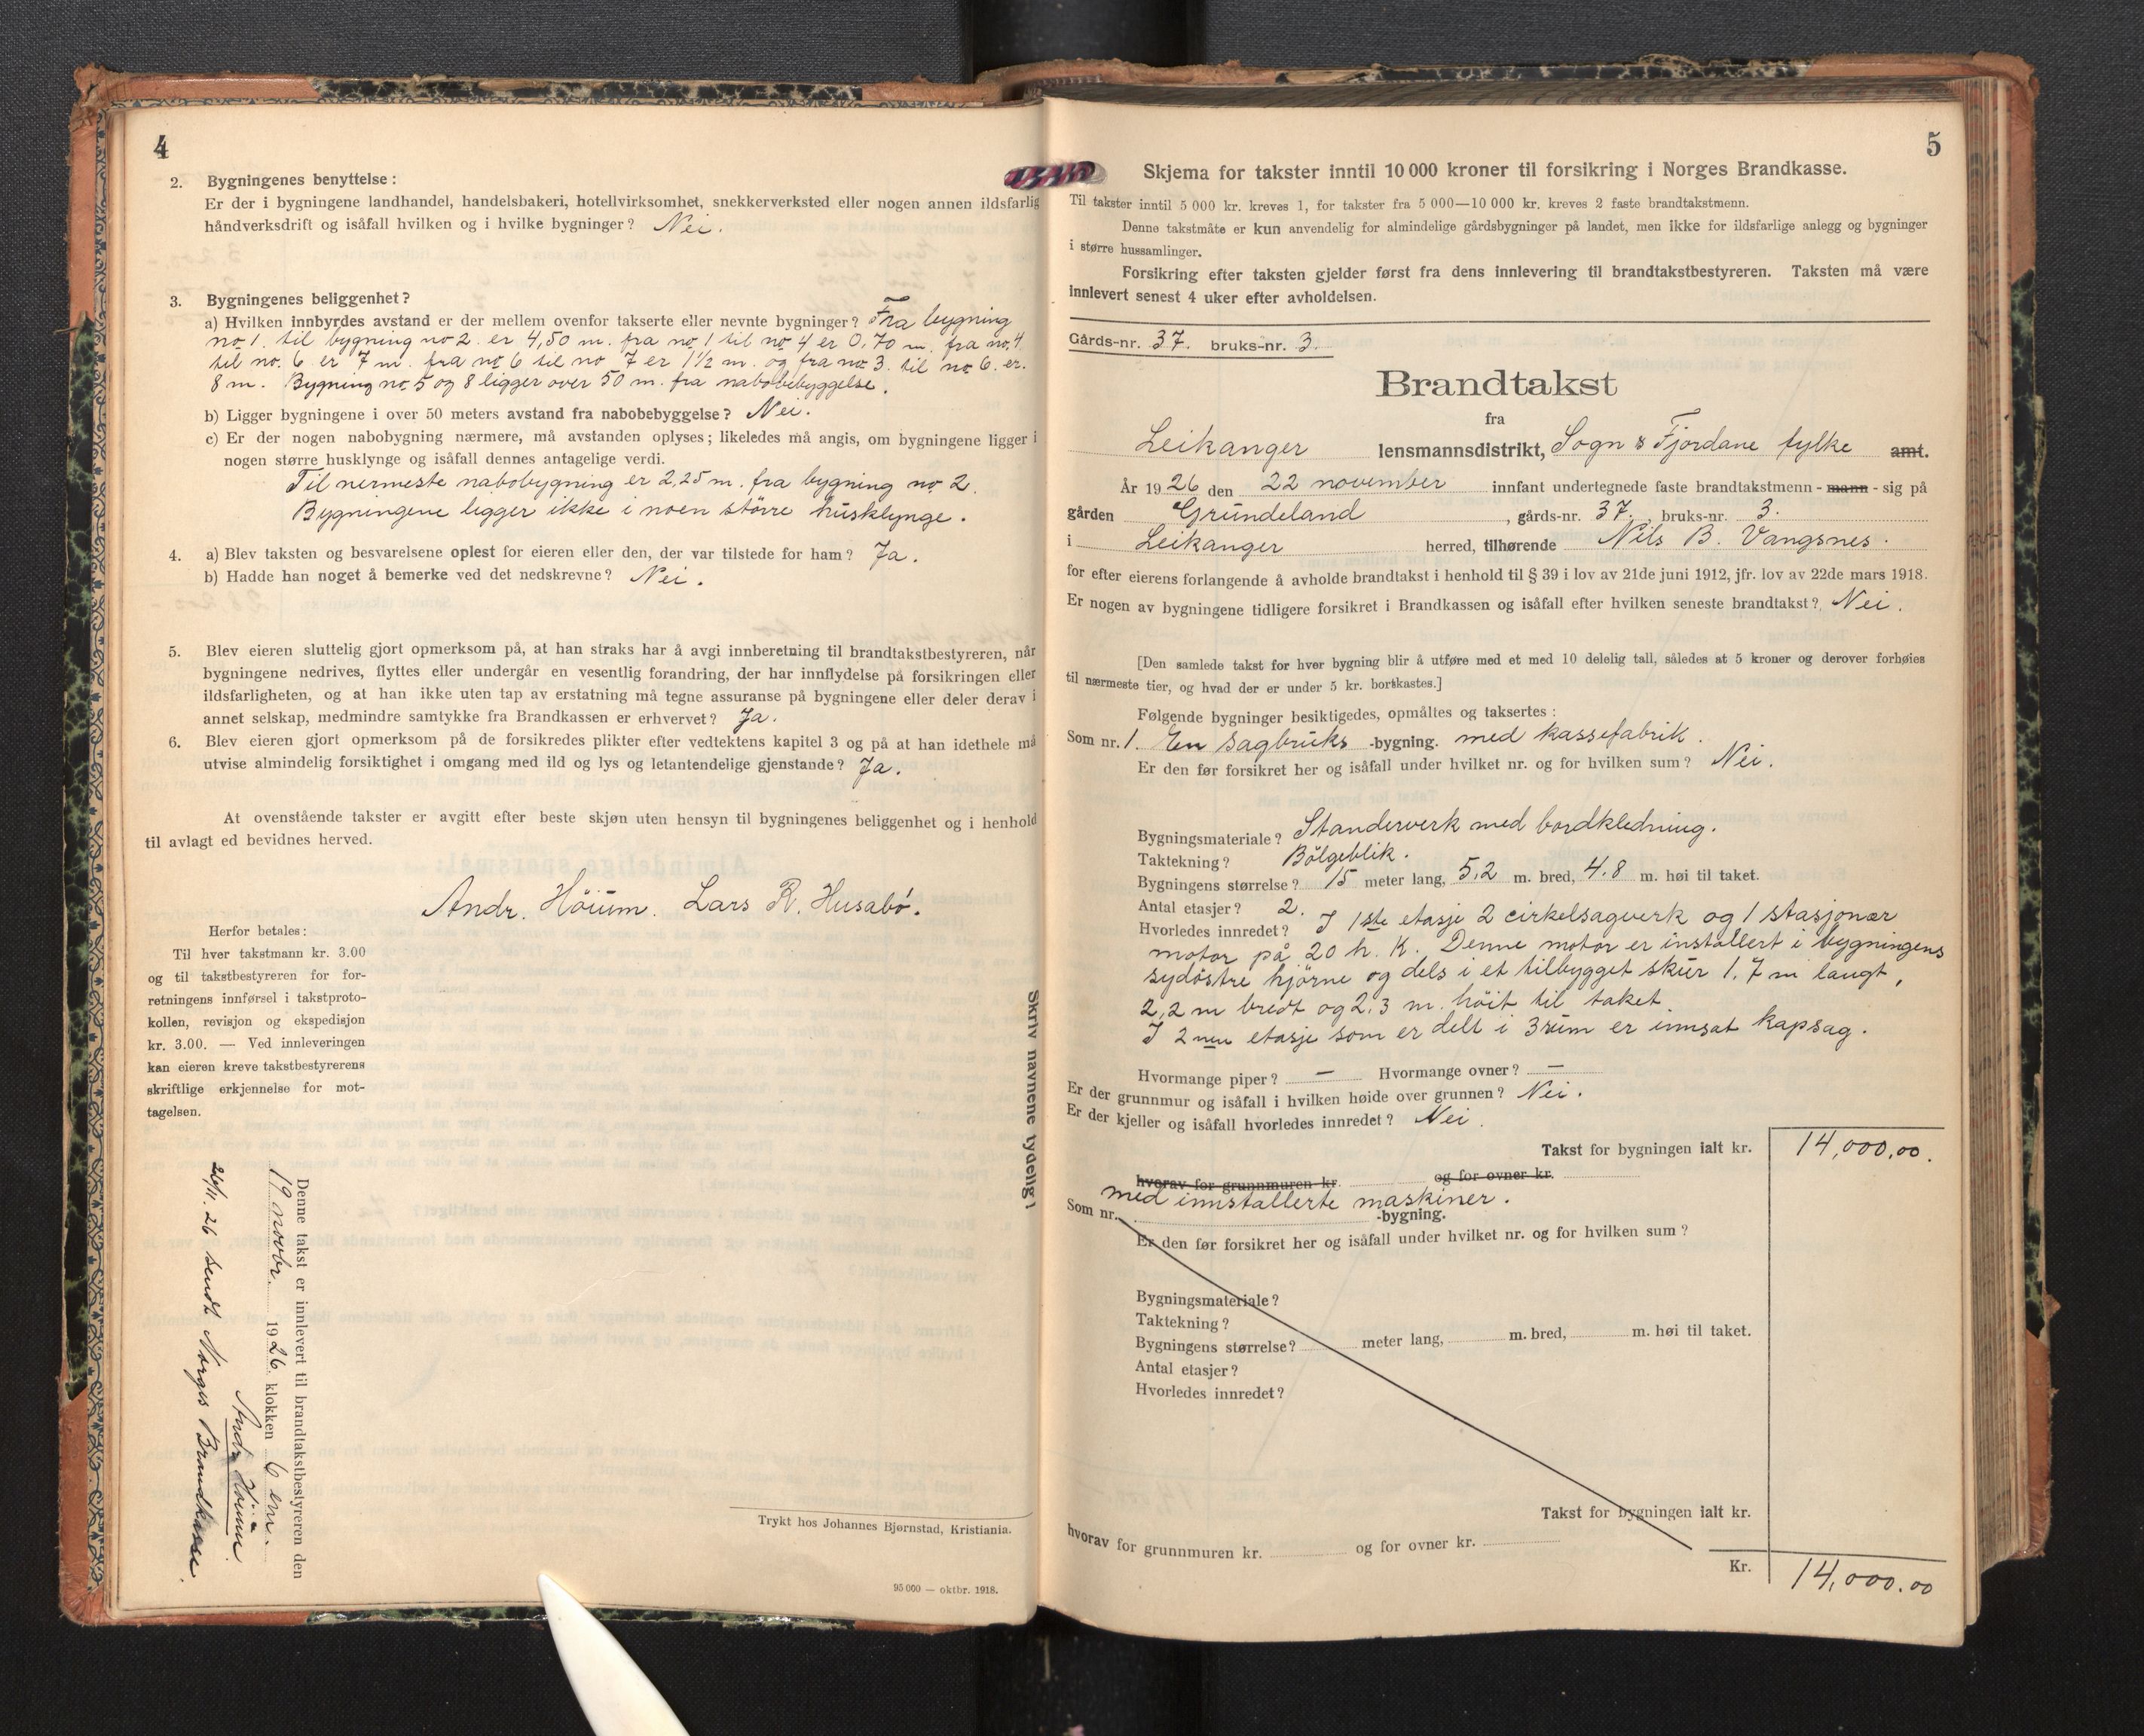 4
2. Bygningenes benyttelse:
Er der i bygningene landhandel, handelsbakeri, hotellvirksomhet, snekkerverksted eller nogen annen ildsfarlig
håndverksdrift og isåfall hvilken og i hvilke bygninger? Nei.
3. Bygningenes beliggenhet?
a) Hvilken innbyrdes avstand er der mellem ovenfor takserte eller nevnte bygninger? Fra bygning
no 1. til bygning no 2. er 4,50 m. fra no 1 til no 4 er 0,70 m. fra no. 4
til no. 6 er 7 m. fra no 6 til no 7 er 1½ m. og fra no 3. til no 6. er.
8 m. Bygning no 5 og 8 ligger over 50 m. fra nabobebyggelse.
b) Ligger bygningene i over 50 meters avstand fra nabobebyggelse? Nei.
c) Er der nogen nabobygning nærmere, må avstanden oplyses; likeledes må angis, om bygningene ligger i
nogen større husklynge og isåfall dennes antagelige verdi.
Til nermeste nabobygning er 2,25 m. fra bygning no 2.
Bygningene ligger ikke i noen större husklynge.
4. a) Blev taksten og besvarelsene oplest for eieren eller den, der var tilstede for ham? Ja.
b) Hadde han noget å bemerke ved det nedskrevne? Nei.
5. Blev eieren sluttelig gjort opmerksom på, at han straks har å avgi innberetning til brandtakstbestyreren, når
bygningene nedrives, flyttes eller undergår en vesentlig forandring, der har innflydelse på forsikringen eller
ildsfarligheten, og at han ikke uten tap av erstatning må tegne assuranse på bygningene eller deler derav i
annet selskap, medmindre samtykke fra Brandkassen er erhvervet? Ja.
6. Blev eieren gjort opmerksom på de forsikredes plikter efter vedtektens kapitel 3 og på at han idethele må
utvise almindelig forsiktighet i omgang med ild og lys og letantendelige gjenstande? Ja.
At ovenstående takster er avgitt efter beste skjøn uten hensyn til bygningenes beliggenhet og i henhold
til avlagt ed bevidnes herved.
Andr. Höium. Lars R. Husabö.
Herfor betales:
Til hver takstmann kr. 3.00
og til takstbestyreren for for-
retningens innførsel i takstproto-
kollen, revisjon og ekspedisjon
kr. 3.00. — Ved innleveringen
kan eieren kreve takstbestyrerens
skriftlige erkjennelse for mot-
tagelsen.
Skriv navnene tydelig!
Denne takst er innlevert til brandtakstbestyreren den
19 novbr. 1926. klokken 6 em.
Andr. Höium.
26/11. 26 sendt Norges Brandkasse.
Trykt hos Johannes Bjørnstad, Kristiania.
95 000 — oktbr. 1918.
5
Skjema for takster inntil 10 000 kroner til forsikring i Norges Brandkasse.
Til takster inntil 5 000 kr. kreves 1, for takster fra 5 000—10 000 kr. kreves 2 faste brandtakstmenn.
Denne takstmåte er kun anvendelig for almindelige gårdsbygninger på landet, men ikke for ildsfarlige anlegg og bygninger
i større hussamlinger.
Forsikring efter taksten gjelder først fra dens innlevering til brandtakstbestyreren. Taksten må være
innlevert senest 4 uker efter avholdelsen.
Gårds-nr. 37. bruks-nr. 3.
Brandtakst
fra
Leikanger lensmannsdistrikt, Sogn & Fjordane fylke amt.
År 1926 den 22 november innfant undertegnede faste brandtakstmenn - mann - sig på
gården Grundeland, gårds-nr. 37. bruks-nr. 3.
i Leikanger herred, tilhørende Nils B. Vangsnes.
for efter eierens forlangende å avholde brandtakst i henhold til § 39 i lov av 21de juni 1912, jfr. lov av 22de mars 1918.
Er nogen av bygningene tidligere forsikret i Brandkassen og isåfall efter hvilken seneste brandtakst? Nei.
[Den samlede takst for hver bygning blir å utføre med et med 10 delelig tall, således at 5 kroner og derover forhøies
til nærmeste tier, og hvad der er under 5 kr. bortkastes.]
Følgende bygninger besiktigedes, opmåltes og taksertes:
Som nr. 1. En sagbruks -bygning. med kassefabrik.
Er den før forsikret her og isåfall under hvilket nr. og for hvilken sum? Nei.
Bygningsmateriale? Standerverk med bordkledning.
Taktekning? Bölgeblik.
Bygningens størrelse? 15 meter lang, 5,2 m. bred, 4.8 m. høi til taket.
Antal etasjer? 2.
Hvorledes innredet? I 1ste etasje 2 cirkelsagverk og 1 stasjonær
motor på 20 h. K. Denne motor er installert i bygningens
sydöstre hjörne og dels i et tilbygget skur 1.7 m langt,
2,2 m bredt og 2,3 m. höit til taket.
I 2nen etasje som er delt i 3 rum er innsat kapsag.
Hvormange piper? — Hvormange ovner? —
Er der grunnmur og isåfall i hvilken høide over grunnen? Nei.
Er der kjeller og isåfall hvorledes innredet? Nei.
Takst for bygningen ialt kr. 14,000.00.
hvorav for grunnmuren kr. og for ovner kr.
med innstallerte maskiner.
Som nr. -bygning.
Er den før forsikret her og isåfall under hvilket nr. og for hvilken sum?
Bygningsmateriale?
Taktekning?
Bygningens størrelse? meter lang, m. bred, m. høi til taket.
Antal etasjer?
Hvorledes innredet?
Takst for bygningen ialt kr.
hvorav for grunnmuren kr. og for ovner kr.
Kr. 14,000.00